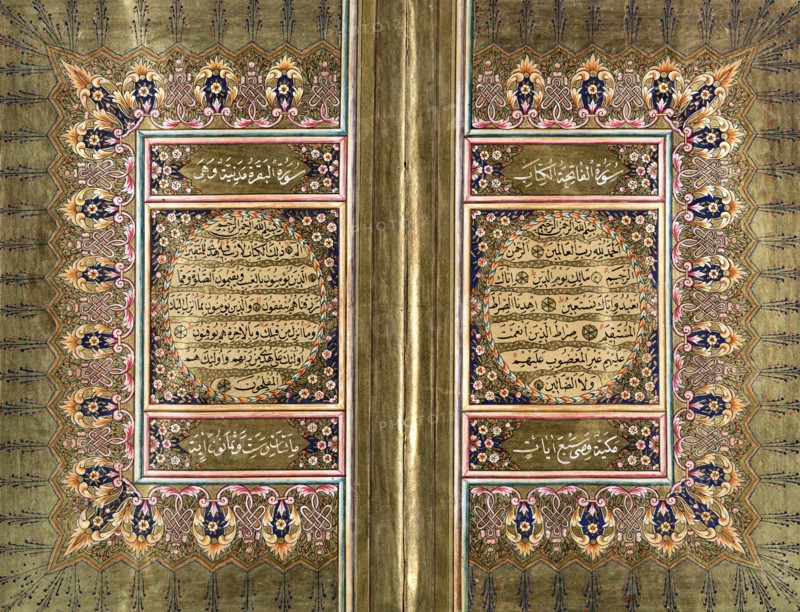 سورة الفاتحة الكتاب
بسم الله الرحمن الرحيم
الحمد لله رب العالمين الرحمن
الرحيم مالك يوم الدين اياك
نعبد واياك نستعين اهدنا الصراط
المستقيم صراط الذين انعمت
عليهم غير المغضوب عليهم
ولا الضالين
مكية وهي سبع ايات
سورة البقرة مدنية وهي
بسم الله الرحمن الرحيم
الم ذلك الكتاب لا ريب فيه هدى للمتقين
الذين يؤمنون بالغيب ويقيمون الصلوة ومما
رزقناهم ينفقون والذين يؤمنون بما انزل اليك
وما انزل من قبلك وبالاخرة هم يوقنون
اولئك على هدى من ربهم واولئك هم
المفلحون
مأتان وست وثمانون اية